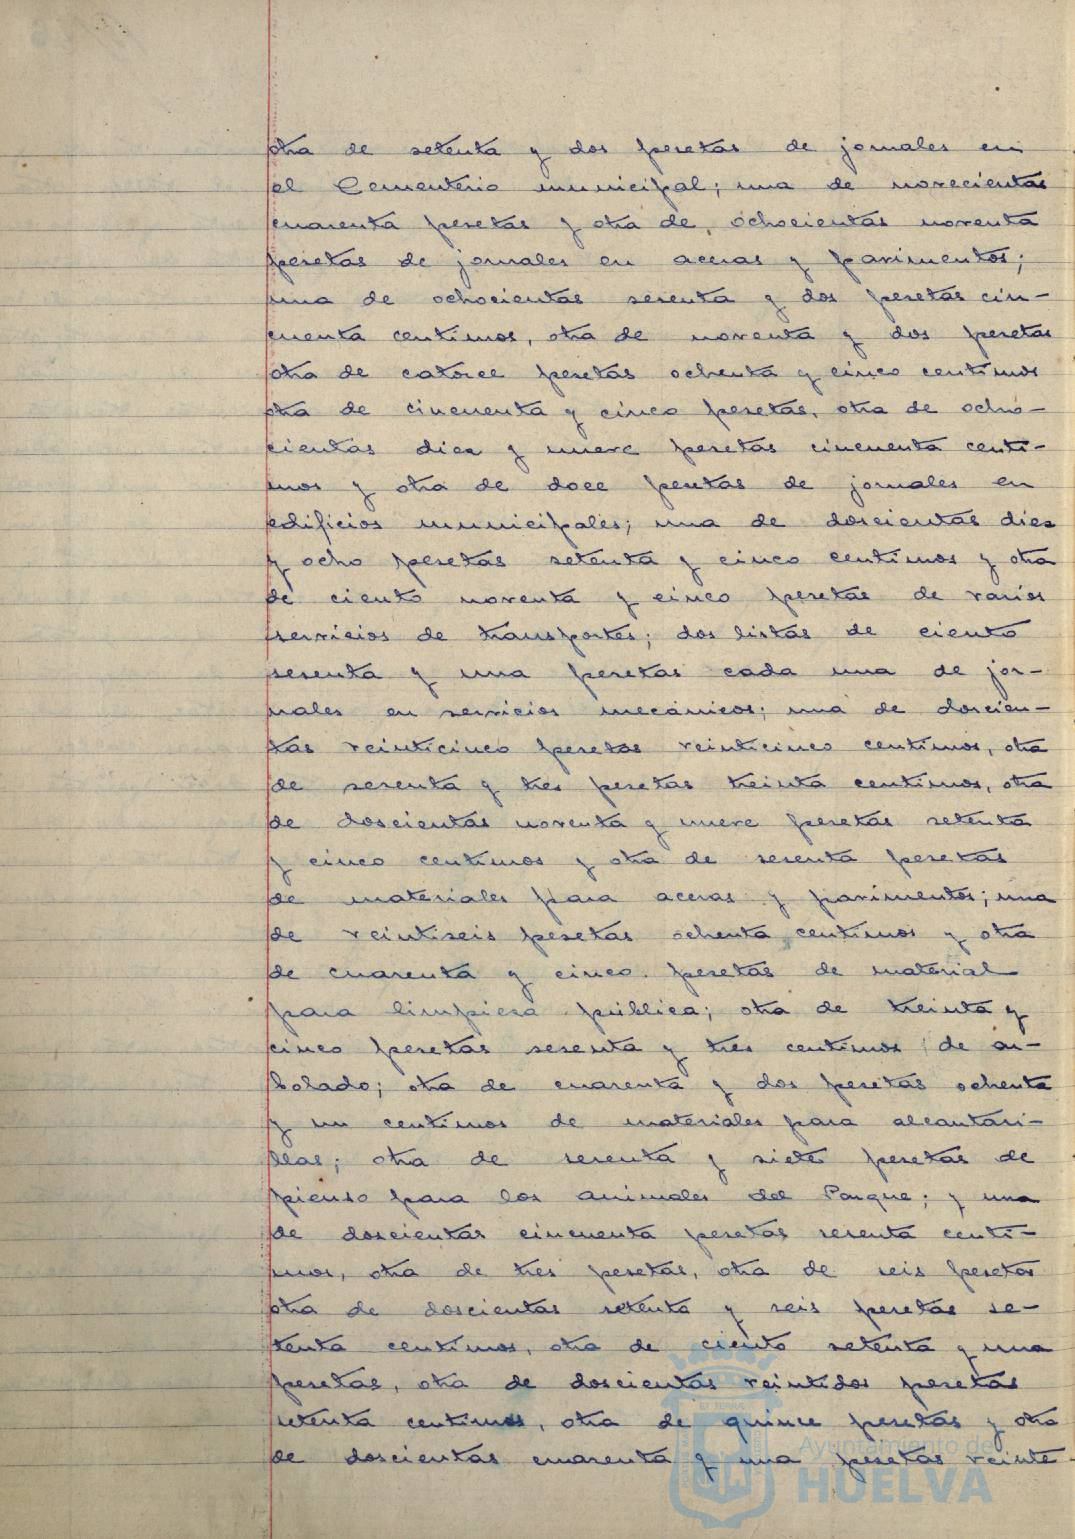 otra de setenta y dos pesetas de jornales en
el Cementerio municipal; una de novecientas
cuarenta pesetas y otra de, ochocientas noventa
pesetas de jornales en aceras y pavimentos;
una de ochocientas sesenta y dos pesetas cin-
cuenta centimos, otra de noventa y dos pesetas
otra de catorce pesetas ochenta y cinco centimos
otra de cincuenta y cinco pesetas, otra de ocho-
cientas diez y nueve pesetas cincuenta centi-
mos y otra de doce pesetas de jornales en
edificios municipales; una de doscientas diez
y ocho pesetas setenta y cinco centimos y otra
de ciento noventa y cinco pesetas de varios
servicios de transportes; dos listas de ciento
sesenta y una pesetas cada una de jor-
nales en servicios mecánicos; una de doscien-
tas veinticinco pesetas veinticinco centimos, otra
de sesenta y tres pesetas treinta centimos, otra
de doscientas noventa y nueve pesetas setenta
y cinco centimos y otra de sesenta pesetas
de materiales para aceras y pavimentos; una
de veintiseis pesetas ochenta centimos y otra
de cuarenta y cinco pesetas de material
para limpieza pública; otra de treinta y
cinco pesetas sesenta y tres centimos de ar-
bolado; otra de cuarenta y dos pesetas ochenta
y un centimos de materiales para alcantari-
llas; otra de sesenta y siete pesetas de
pienso para los animales del Parque; y una
de doscientas cincuenta pesetas sesenta centi-
mos, otra de tres pesetas, otra de seis pesetas
otra de doscientas setenta y seis pesetas se-
tenta centimos, otra de ciento setenta y una
pesetas, otra de doscientas veintidos pesetas
setenta centimos, otra de quince pesetas y otra
de doscientas cuarenta y una pesetas veinte
Ayuntamiento de
HUELVA